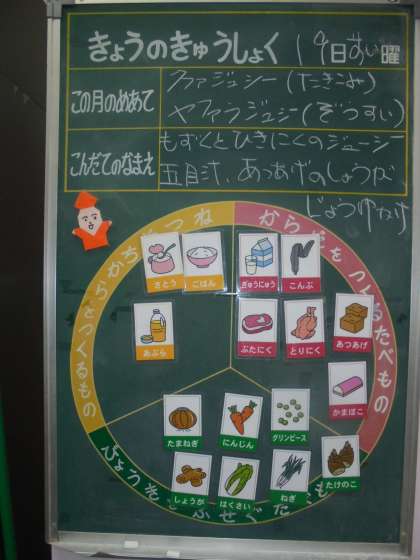 きょうのきゅうしょく 19日 すい曜
この月のめあて
クファジュシー(たきこみ)
ヤファラジュシー(ぞうすい)
こんだてのなまえ
もずくとひきにくのジューシー
五目汁、あつあげのしょうが
じょうゆかけ
ちからやたいおんとなるもの
からだをつくるたべもの
さとう ごはん ぎゅうにゅう こんぶ
あぶら ぶたにく とりにく あつあげ
かまぼこ
たまねぎ にんじん グリンピース
しょうが はくさい ねぎ たけのこ